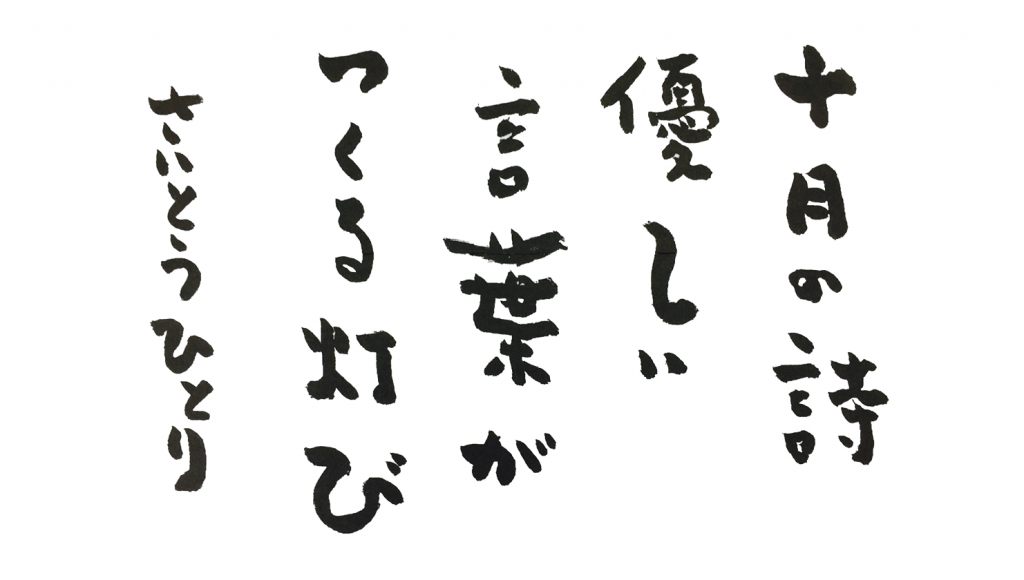 十月の詩
優しい
言葉が
つくる灯び
さいとうひとり